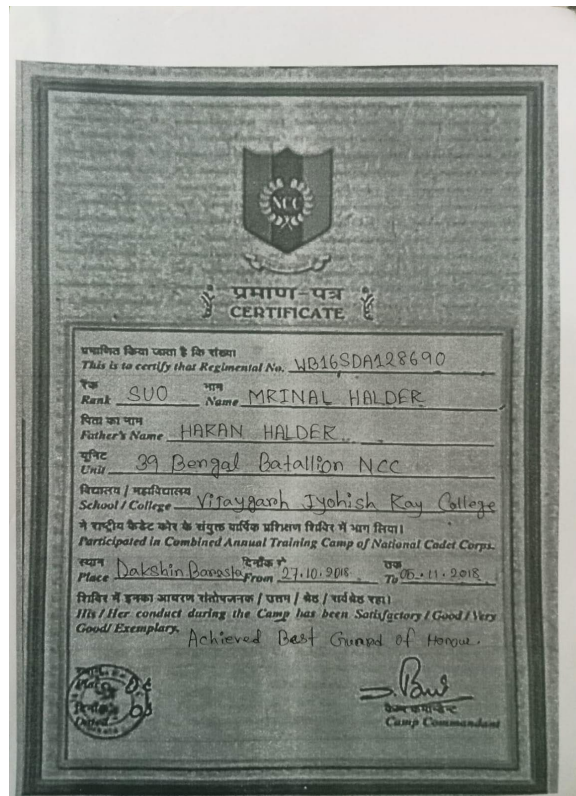 NCC
प्रमाण-पत्र
CERTIFICATE
प्रमाणित किया जाता है कि संख्या
This is to certify that Regimental No. WB16SDA128690
रैंक नाम
Rank SUO Name MRINAL HALDER
पिता का नाम
Father's Name HARAN HALDER
यूनिट
Unit 39 Bengal Batallion NCC
विद्यालय / महाविद्यालय
School / College Vijaygarh Jyohish Ray College
ने राष्ट्रीय कैडेट कोर के संयुक्त वार्षिक प्रशिक्षण शिविर में भाग लिया।
Participated in Combined Annual Training Camp of National Cadet Corps.
स्थान दिनाँक से तक
Place Dakshin Barasta From 27.10.2018 To 05.11.2018
शिविर में इनका आचरण संतोषजनक / उत्तम / श्रेष्ठ / सर्वश्रेष्ठ रहा।
His / Her conduct during the Camp has been Satisfactory / Good / Very
Good / Exemplary. Achieved Best Guard of Honour.
स्थान
दिनाँक
Dated
कैम्प कमान्डेन्ट
Camp Commandant